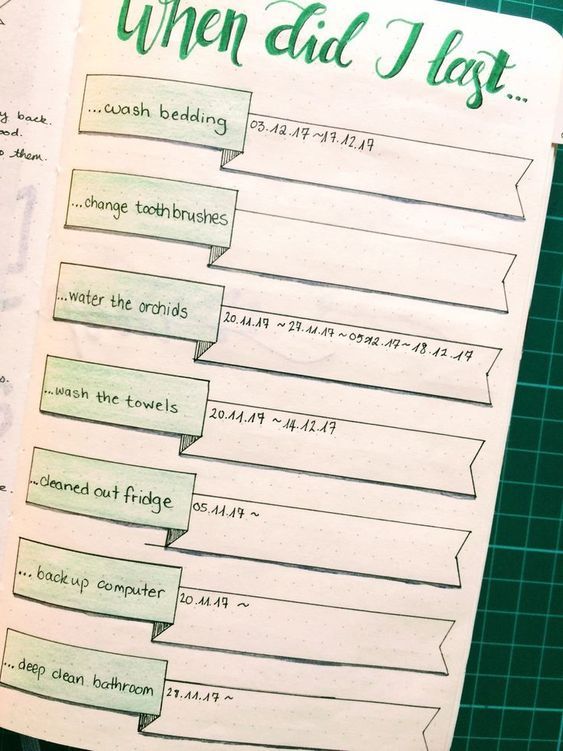 When did I last...
...wash bedding
03.12.17~17.12.17
...change toothbrushes
...water the orchids
20.11.17 ~ 27.11.17~05.12.17~18.12.17
...wash the towels
20.11.17 ~14.12.17
...cleaned out fridge
05.11.17 ~
...backup computer
20.11.17 ~
...deep clean bathroom
28.11.17 ~
back.
them.